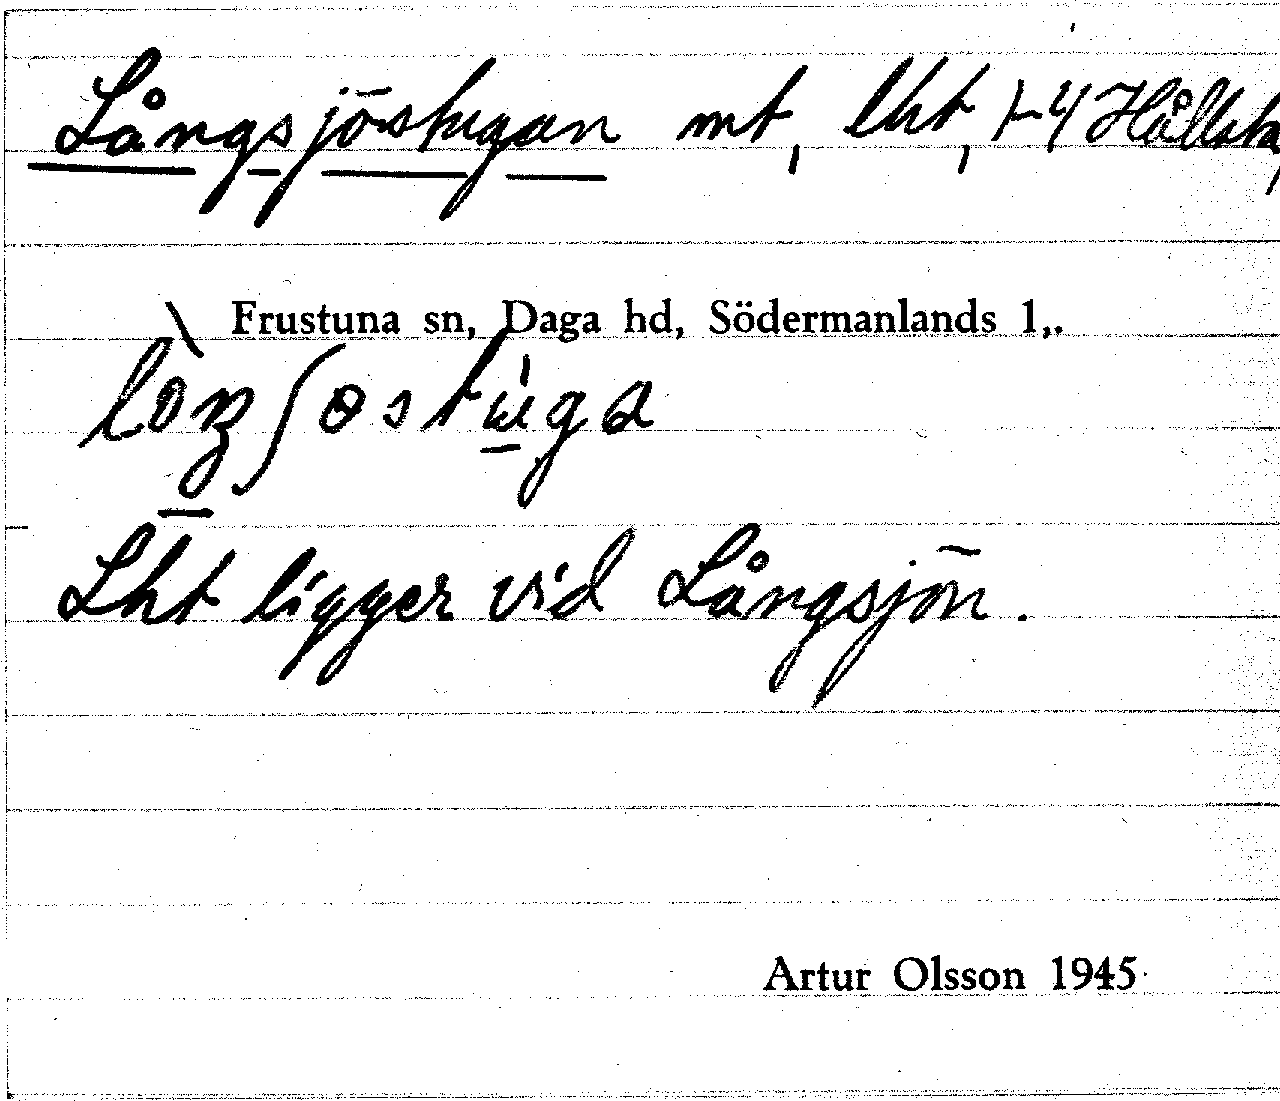 Långsjöstugan mt, lht, 1-4 Hållsta,
Frustuna sn, Daga hd, Södermanlands l,.
Lht ligger vid Långsjön.
Artur Olsson 1945